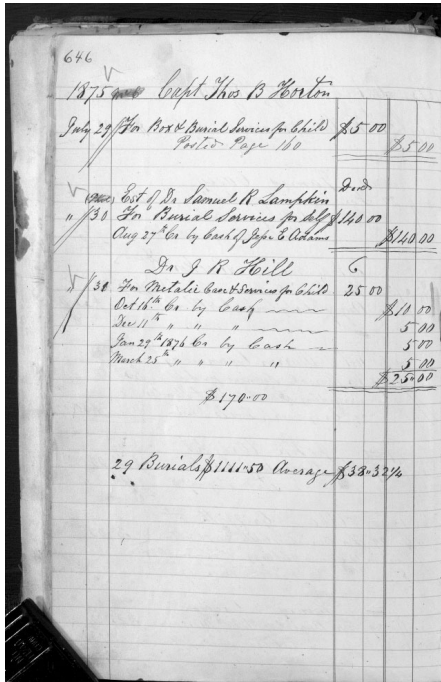 646
1875 Capt Thos B Horton
July 29 For Box & Burial Services for Child $5 00
Posted Page 160 $5 00
Est of Dr Samuel R Lampkin
" 30 For Burial Services for Self $140.00
Aug 27th Cr by Cash of Jesse E Adams $140.00
Dr. J R Hill
" 30 For Metalic Case & Services for Child 25 00
Oct 16th Cr by Cash $10 00
Dec 11th " " " 5 00
Jan 29th 1876 Cr by Cash 5 00
March 25th " " " " 5 00
$25.00
$170.00
29 Burials $1111.50 Average $38.32 1/4